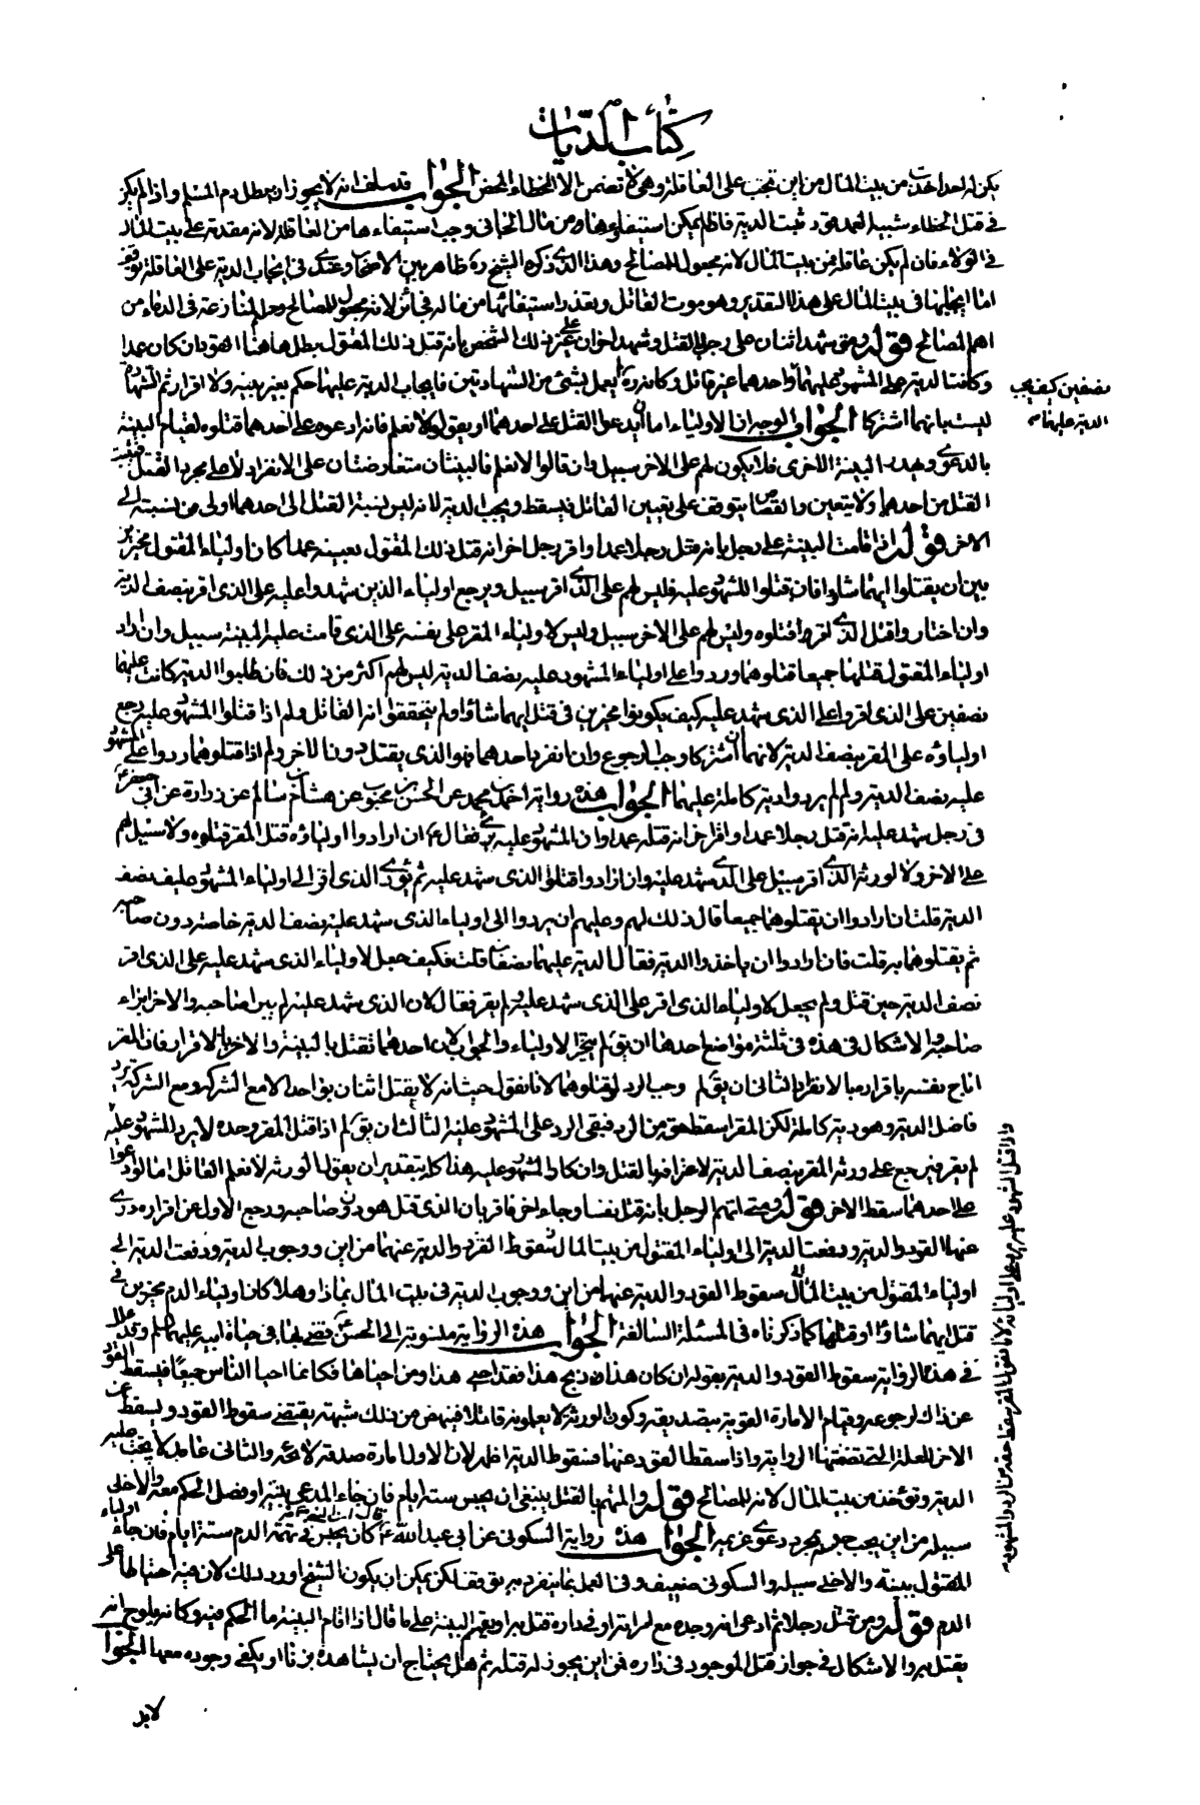 كتاب الديات
يكن له احد اخذت من بيت المال من اين تجب على العاقلة وهى لا تضمن الا الخطاء المحض الجواب قد سلف انه لا يجوز ان يطل دم المسلم واذا لم يكن
فى قتل الخطاء شبيه العمد قود ثبت الدية فاذا لم يمكن استيفاؤها ومن مال الجانى وجب استيفاءها من العاقلة لانه مقدمة على بيت المال
فى الولاء فان لم يكن عاقلة فمن بيت المال لانه مجعول للمصالح وهذا الذى ذكره الشيخ ره ظاهر بين الاصحاب وعندى فى ايجاب الدية على العاقلة توقف
اما ايجابها فى بيت المال على هذا التقدير وهو موت القاتل وتعذر استيفائها من ماله فجائز لانه مجعول للمصالح وحل المنازعة فى الدماء من
اهم المصالح قوله ومتى شهد اثنان على رجل بالقتل وشهد اخران على غير ذلك الشخص بانه قتل ذلك المقتول بطل هاهنا القود ان كان عمدا
وكانت الدية على المشهود عليهما واحدهما غير قاتل وكانه ره لم يعمل بشئ من الشهادتين فايجاب الدية عليهما حكم بغير بينة ولا اقرار ثم الشهادة
نصفين كيف يجب
الدية عليهما
ليست بانهما اشتركا الجواب الوجه ان الاولياء اما ان يدعوا القتل على احدهما او يقولوا لا نعلم فان ادعوه على احدهما قتلوه لقيام البينة
بالدعوى وتهدر البينة الاخرى فلا يكون لهم على الاخر سبيل وان قالوا لا نعلم فالبينتان متعارضتان على الانفراد لا على مجرد القتل فيثبت
القتل من احدهما ولا يتعين والقصاص يتوقف على تعيين القاتل فيسقط ويجب الدية لانه ليس نسبة القتل الى احدهما اولى من نسبته الى
الاخر قوله اذا قامت البينة على رجل بانه قتل رجلا عمدا واقر رجل اخر انه قتل ذلك المقتول بعينه عمدا كان اولياء المقتول مخيرين
بين ان يقتلوا ايهما شاؤا فان قتلوا المشهود عليه فليس لهم على الذى اقر سبيل ويرجع اولياء الذين شهدوا عليه على الذى اقر بنصف الدية
وان اختاروا قتل الذى اقر قتلوه وليس لهم على الاخر سبيل وليس لاولياء المقر على نفسه على الذى قامت عليه البينة سبيل وان اراد
اولياء المقتول قتلهما جميعا قتلوهما وردوا على اولياء المشهود عليه نصف الدية ليس لهم اكثر من ذلك فان طلبوا الدية كانت عليهما
نصفين على الذى اقر وعلى الذى شهد عليه كيف يكونوا مخيرين فى قتل ايهما شاؤا ولم يتحققوا انه القاتل ولم اذا قتلوا المشهود عليه رجع
اولياؤه على المقر بنصف الدية لانهما ان اشتركا وجب الرجوع وان انفرد احدهما فهو الذى يقتل دون الاخر ولم اذا قتلوهما ردوا على المشهود
عليه نصف الدية ولم لم يردوا دية كاملة عليهما الجواب هذه رواية احمد بن محمد عن الحسن بن محبوب عن هشام بن سالم عن زرارة عن ابى جعفر ع
فى رجل شهد عليه انه قتل رجلا عمدا واقر اخر انه قتله عمدا وان المشهود عليه برئ فقال ع ان ارادوا اولياؤه قتل المقر قتلوه ولا سبيل لهم
على الاخر ولا لورثة الذى اقر سبيل على الذى شهد عليه وان ارادوا قتلوا الذى شهد عليه ثم يؤدى الذى اقر الى اولياء المشهود عليه نصف
الدية قلت ان ارادوا ان يقتلوهما جميعا قال ذلك لهم وعليهم ان يردوا الى اولياء الذى شهد عليه نصف الدية خاصة دون صاحبه
ثم يقتلوهما به قلت فان ارادوا ان ياخذوا الدية فقال الدية عليهما نصفان قلت فكيف جعل لاولياء الذى شهد عليه على الذى اقر
نصف الدية حين قتل ولم يجعل لاولياء الذى اقر على الذى شهد عليه ولم يقر فقال لان الذى شهد عليه لم يبرء صاحبه والاخر ابراء
صاحبه والاشكال فى هذه فى ثلثة مواضع احدها ان يق لم يتخير الاولياء والجواب لان احدهما تقتل بالبينة والاخر بالاقرار فان المقر
اباح نفسه باقراره بالانفراد الثانى ان يق لم وجب الرد لو قتلوهما لانا نقول حيث انه لا يقتل اثنان بواحد الا مع الشركة ومع الشركة يرد
فاضل الدية وهو دية كاملة لكن المقر اسقط حقه من الرد فبقى الرد على المشهود عليه الثالث ان يق لم اذا قتل المقر وحده لا يرد المشهود عليه
لم يقر فيرجع على ورثة المقر بنصف الدية لاعترافه بالقتل وانكار المشهود عليه هذا كله بتقدير ان يقول الورثة لا نعلم القاتل اما لو ادعوا
على احدهما سقط الاخر قوله ومتى اتهم الرجل بانه قتل نفسا وجاء اخر فاقر بان الذى قتل هو دون صاحبه ورجع الاول عن اقراره درئ
عنهما القود والدية ودفعت الدية الى اولياء المقتول من بيت المال سقوط القود والدية عنهما من اين ووجوب الدية ودفعت الدية الى
اولياء المقتول من بيت المال سقوط القود والدية عنهما من اين ووجوب الدية فى بيت المال بماذا وهلا كان اولياء الدم مخيرين فى
قتل ايهما شاؤا او قتلهما كما ذكرناه فى المسئلة السالفة الجواب هذه الرواية منسوبة الى الحسن ع قضى بها فى حياة ابيه عليهما السلم وقد علل
فى هذه الرواية سقوط القود والدية بقوله ان كان هذا ذبح هذا فقد احيى هذا ومن احياها فكانما احيا الناس جميعا فيسقط القود
عن ذاك لرجوعه وقيام الامارة القوية بتصديقه وكون الورثة لا يعلمونه قاتلا فينهض من ذلك شبهة يقتضى سقوط القود ويسقط عن
الاخر للعلة التى تضمنتها الرواية واذا سقط القود عنهما فسقوط الدية اظهر لان الاول امارة صدقه لائحة والثانى عامد لا تجب عليه
الدية وتؤخذ من بيت المال لانه للمصالح قوله والمتهم بالقتل ينبغى ان يحبس ستة ايام فان جاء المدعى ببينة او فصل الحكم معه والا خلى
سبيله من اين يجب حبسه بمجرد دعوى غريمه الجواب هذه رواية السكونى عن ابى عبد الله ع قال ان النبى ص كان يحبس فى تهمة الدم ستة ايام فان جاء اولياء
المقتول ببينة والا خلى سبيله والسكونى ضعيف وفى العمل بما ينفرد به توقف لكن يمكن ان يكون الشيخ اورد ذلك لان فيه احتياطا على
الدم قوله ومن قتل رجلا ثم ادعى انه وجده مع امراته او فى داره قتل به او يقيم البينة على ما قال اذا اقام البينة ما الحكم فيه وكانه يلوح انه
يقتل به والاشكال فى جواز قتل الموجود فى داره فمن اين يجوز له قتله ثم هل يحتاج ان يشاهده يزنى او يكفى وجوده معها الجواب
لابد